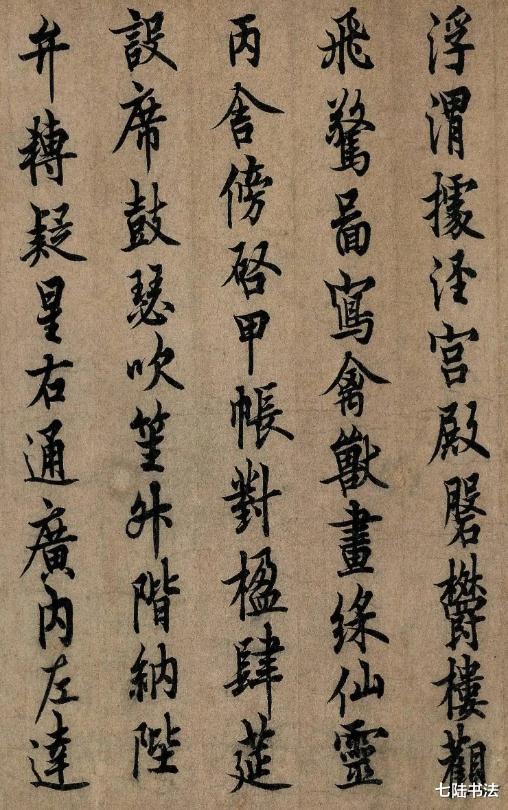 浮渭據涇宮殿磐欝樓觀
飛驚啚寫禽獸畫綵仙靈
丙舍傍啓甲帳對楹肆莚
設席鼓瑟吹笙升階納陛
弁轉疑星右通廣內左達
七陆书法